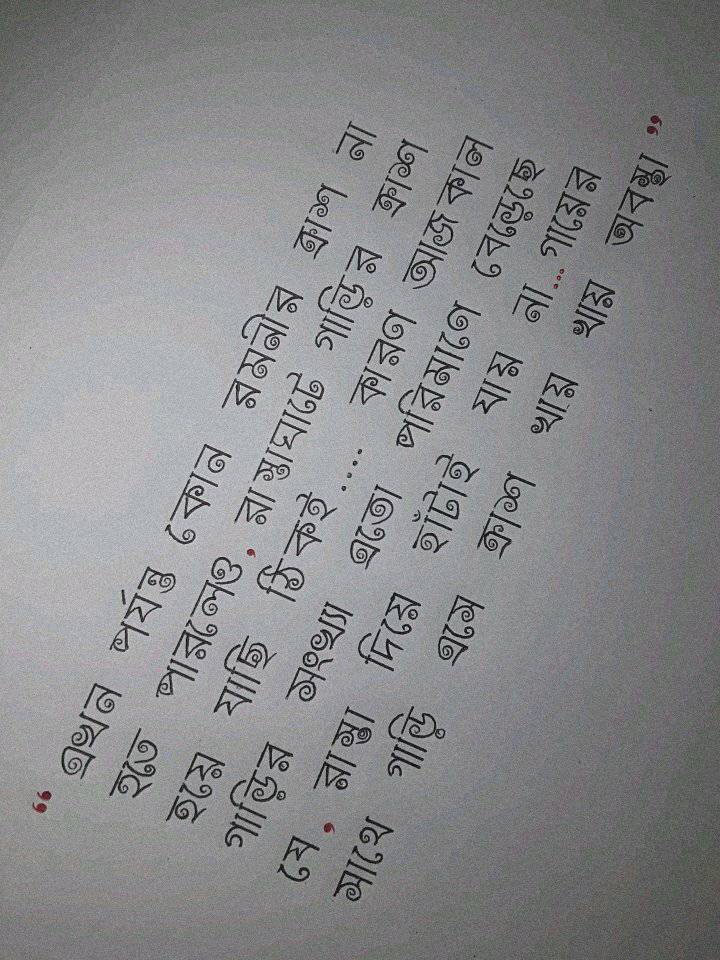 “ এখন পর্যন্ত কোন রমনীর ক্রাশ না
হতে পারলেও, রাস্তাঘাটে গাড়ির ক্রাশ
হয়ে যাচ্ছি ঠিকই ..... কারণ আজ কাল
গাড়ির সংখ্যা এতো পরিমাণে বেড়েছে
যে, রাস্তা দিয়ে হাঁটাই যায় না...গায়ের
সাথে গাড়ি এসে ক্রাশ খায় খায় অবস্থা ”